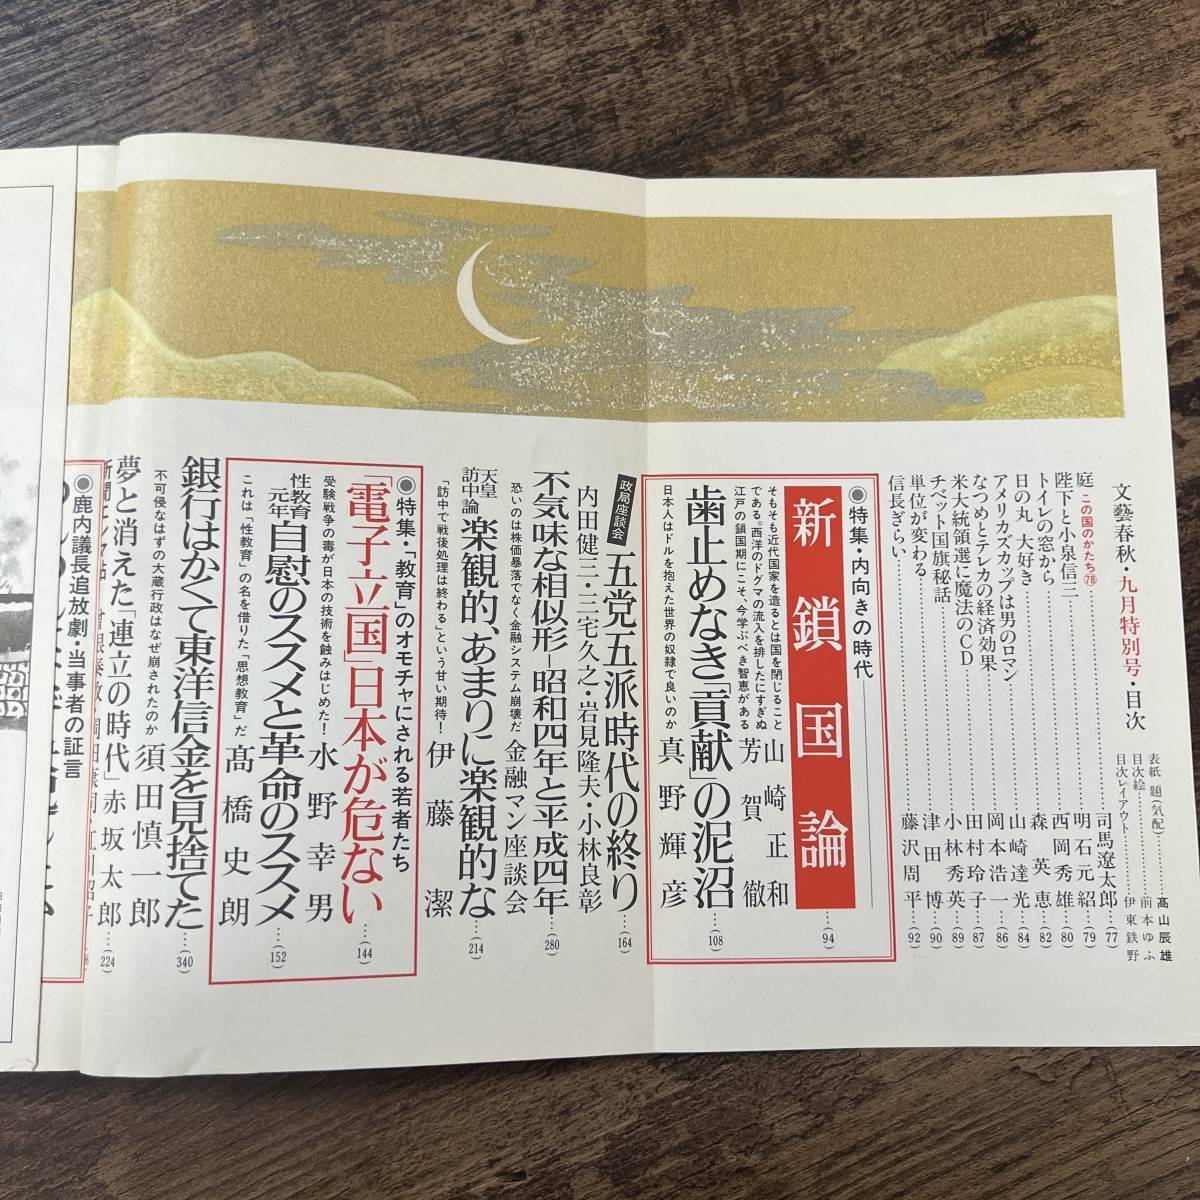 文藝春秋・九月特別号・目次
表紙 題(気配)………髙山辰雄
目次絵………前本ゆふ
目次レイアウト………伊東鉄野
庭 この国のかたち78………司馬遼太郎…(77)
陛下と小泉信三………明石元紹…(79)
トイレの窓から………西岡秀雄…(80)
日の丸 大好き………森英恵…(82)
アメリカズカップは男のロマン………山崎達光…(84)
なつめとテレカの経済効果………岡本浩一…(86)
米大統領選に魔法のCD………田村玲子…(87)
チベット国旗秘話………小林秀英…(89)
単位が変わる………津田博…(90)
信長ぎらい………藤沢周平…(92)
◉特集・内向きの時代
新鎖国論…(94)
そもそも近代国家を造るとは国を閉じること
である。西洋のドグマの流入を排したにすぎぬ
江戸の鎖国期にこそ、今学ぶべき智恵がある
山崎正和
芳賀徹
歯止めなき「貢献」の泥沼…(108)
日本人はドルを抱えた世界の奴隷で良いのか
真野輝彦
政局座談会
五党五派時代の終り…(164)
内田健三・三宅久之・岩見隆夫・小林良彰
不気味な相似形―昭和四年と平成四年…(280)
恐いのは株価暴落でなく金融システム崩壊だ
金融マン座談会
天皇訪中論
楽観的、あまりに楽観的な…(214)
「訪中で戦後処理は終わる」という甘い期待！
伊藤潔
◉特集・「教育」のオモチャにされる若者たち
「電子立国」日本が危ない…(144)
受験戦争の毒が日本の技術を蝕みはじめた！
水野幸男
性教育元年
自慰のススメと革命のススメ…(152)
これは、「性教育」の名を借りた「思想教育」だ
髙橋史朗
銀行はかくて東洋信金を見捨てた…(340)
不可侵なはずの大蔵行政はなぜ崩されたのか
須田慎一郎
夢と消えた「連立の時代」赤坂太郎…(224)
◉鹿内議長追放劇・当事者の証言